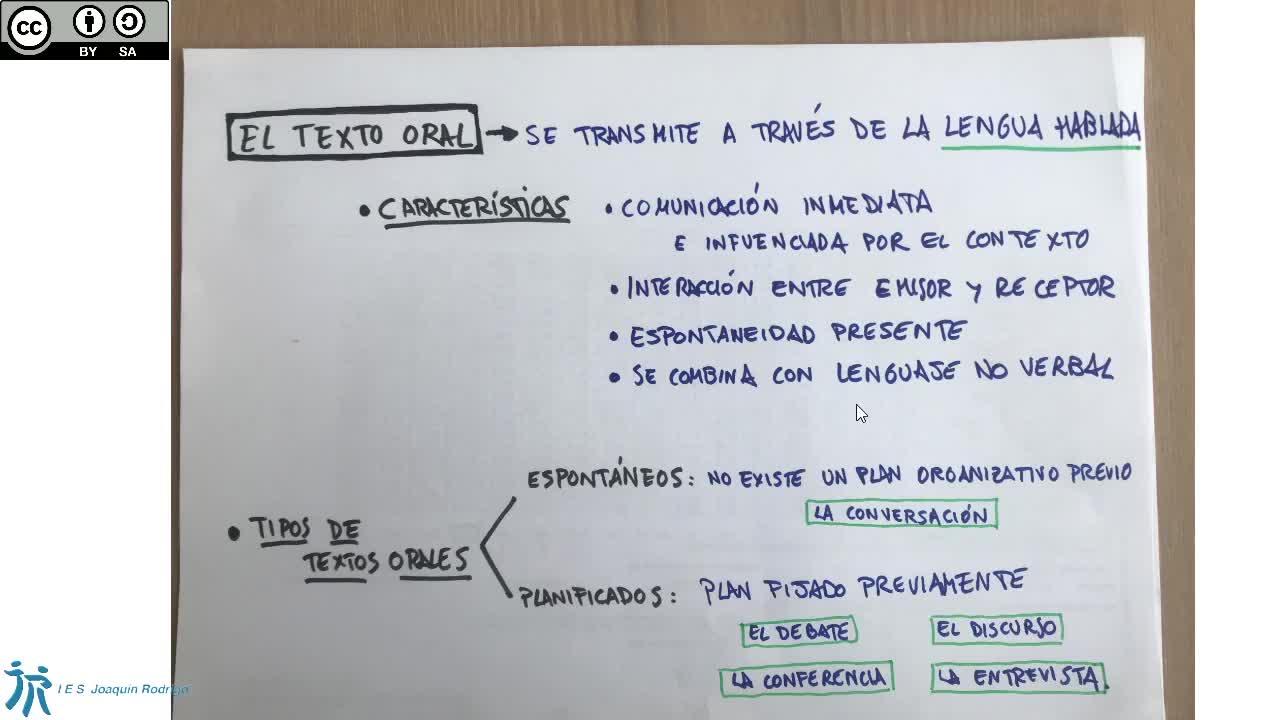 CC
BY SA
EL TEXTO ORAL → SE TRANSMITE A TRAVÉS DE LA LENGUA HABLADA
• CARACTERÍSTICAS • COMUNICACIÓN INMEDIATA
E INFUENCIADA POR EL CONTEXTO
• INTERACCIÓN ENTRE EMISOR Y RECEPTOR
• ESPONTANEIDAD PRESENTE
• SE COMBINA CON LENGUAJE NO VERBAL
ESPONTÁNEOS: NO EXISTE UN PLAN ORGANIZATIVO PREVIO
LA CONVERSACIÓN
• TIPOS DE
TEXTOS ORALES
PLANIFICADOS: PLAN FIJADO PREVIAMENTE
EL DEBATE EL DISCURSO
LA CONFERENCIA LA ENTREVISTA.
IES Joaquín Rodrigo